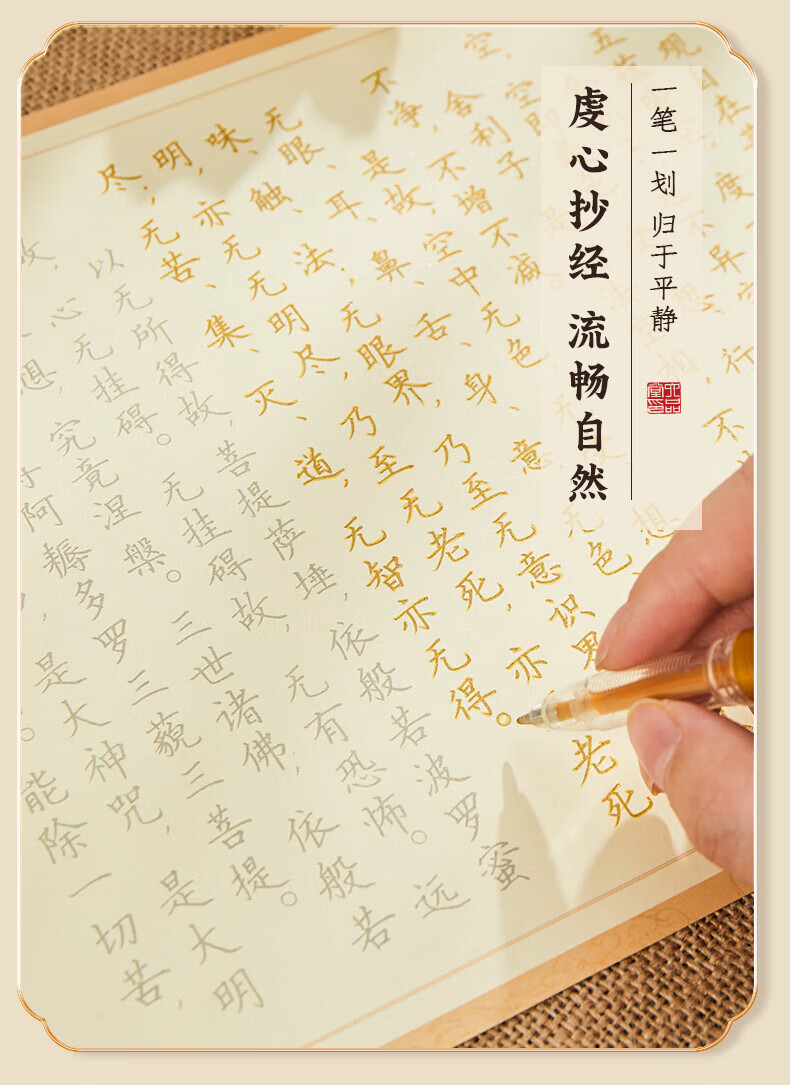 一笔一划 归于平静
虔心抄经 流畅自然
不净，不增不减
是故空中无色、
无眼、耳、鼻、舌、身、意
味、触、法；无眼界，乃至无意识界
明，亦无无明尽，乃至无老死，亦无老死
尽；无苦、集、灭、道，无智亦无得。
以无所得故，菩提萨埵，依般若波罗蜜
故，心无挂碍。无挂碍故，无有恐怖。远
想，究竟涅槃。三世诸佛，依般若
得阿耨多罗三藐三菩提。
是大神咒，是大明
能除一切苦，